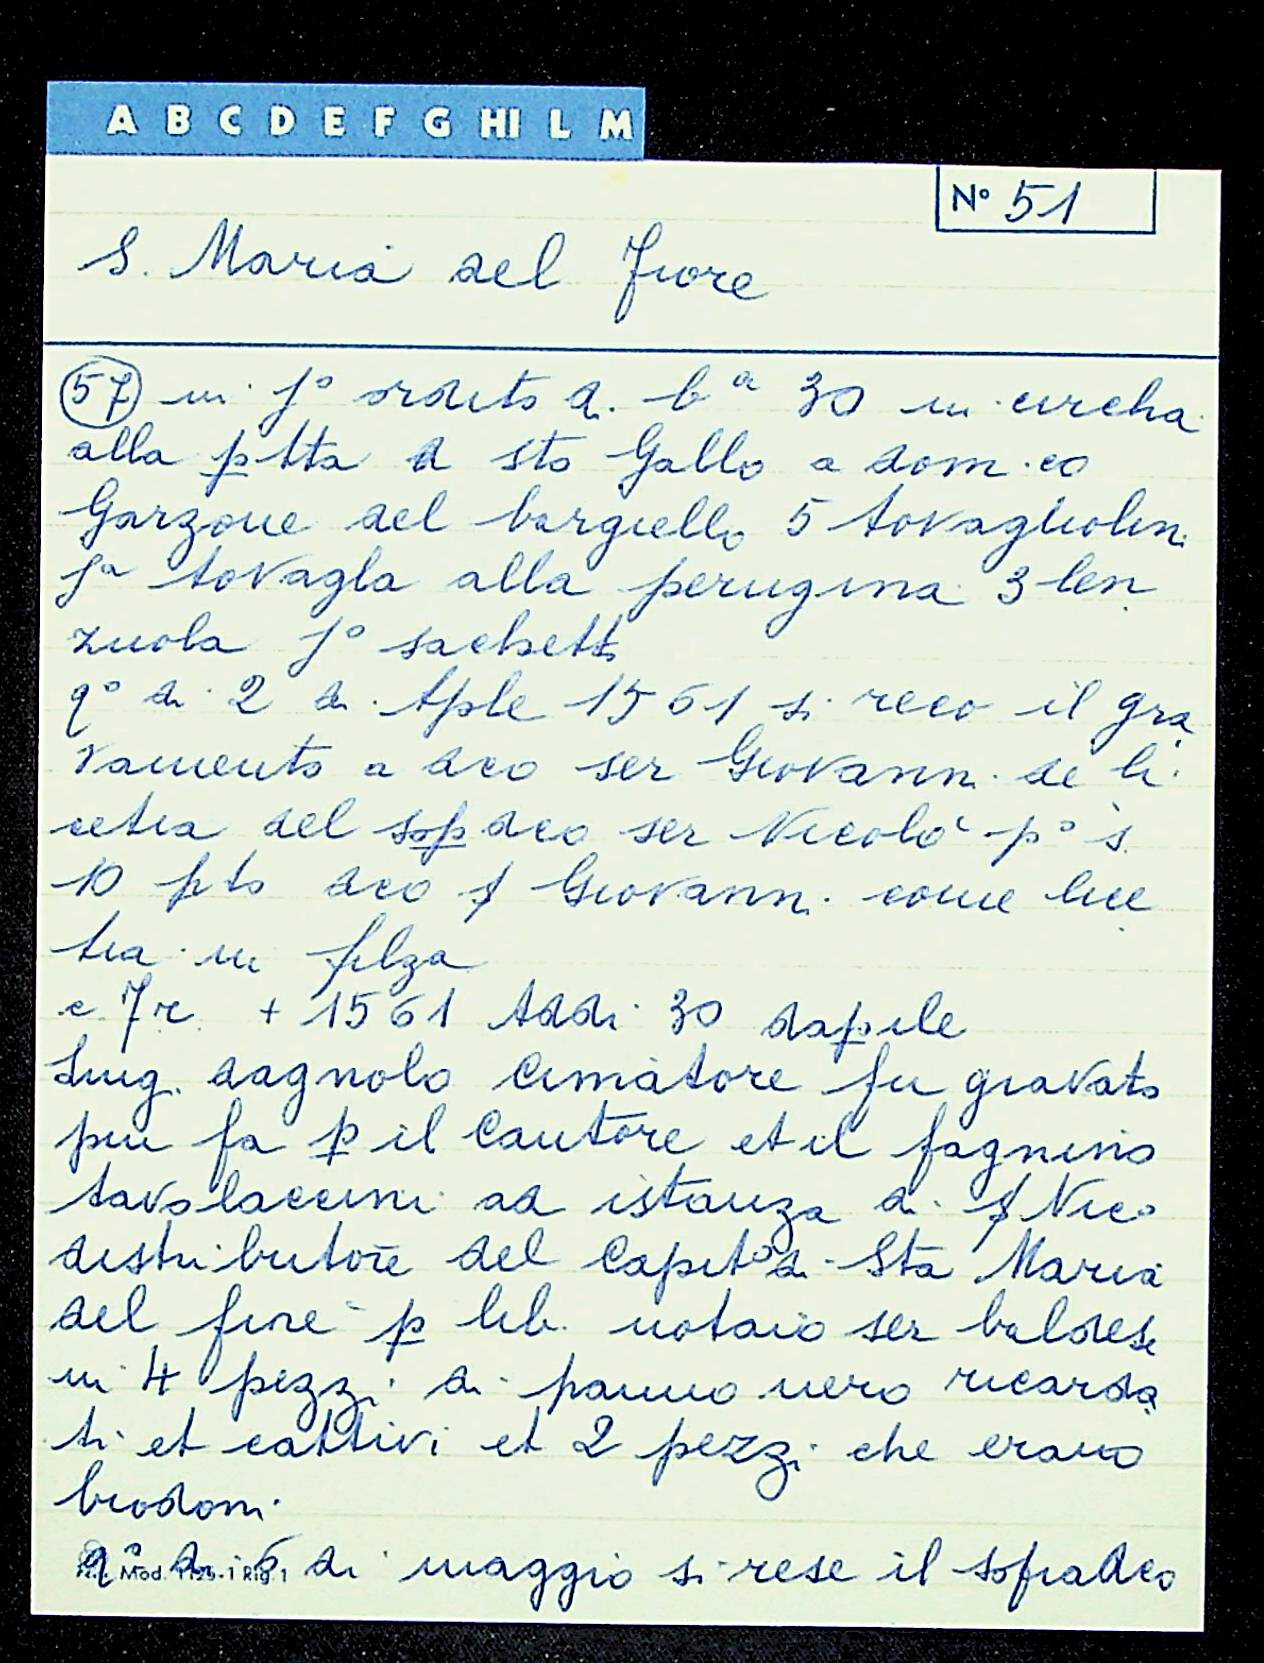 A B C D E F G HI L M
N° 51
S. Maria del Fiore
57 in jº ordito di bª 30 in circha
alla ptta a sto Gallo a dom.co
Garzone del bargiello 5 tovagliolini
jª tovagla alla perugina 3 len
zuola jº sachetto
qº di 2 di Aple 1561 si reco il gra
vamento a dco ser Giovanni de li
cetia del sop dco ser Nicolò pº s.
10 pto dco ș Giovanni come lice
tia in filza
c. 7r. + 1561 Addi 30 daprile
Luigi dagnolo Cimatore fu gravato
piu fa p il Cantore et il fagnino
tavolaccini ad istanza di ș Nicº
distributore del Capitº di Sta Maria
del fiore p lib. notaio ser baldese
in 4 pezzi di panno nero ricarda
ti et cattivi et 2 pezzi che erano
brodoni
qº di 6 di maggio si rese il sofradco
Mod. 1125-1 Rig. 1